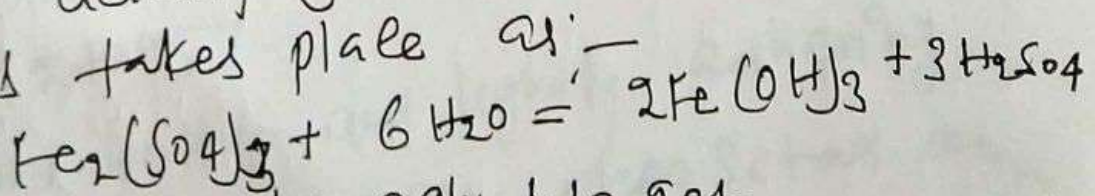 s takes place as:-
Fe2(SO4)3 + 6 H2O = 2Fe(OH)3 + 3 H2SO4